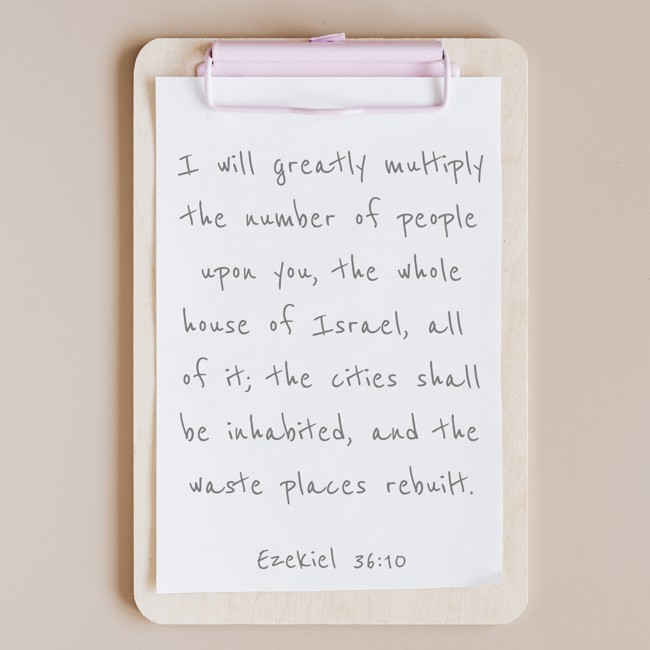 I will greatly multiply
the number of people
upon you, the whole
house of Israel, all
of it; the cities shall
be inhabited, and the
waste places rebuilt.
Ezekiel 36:10